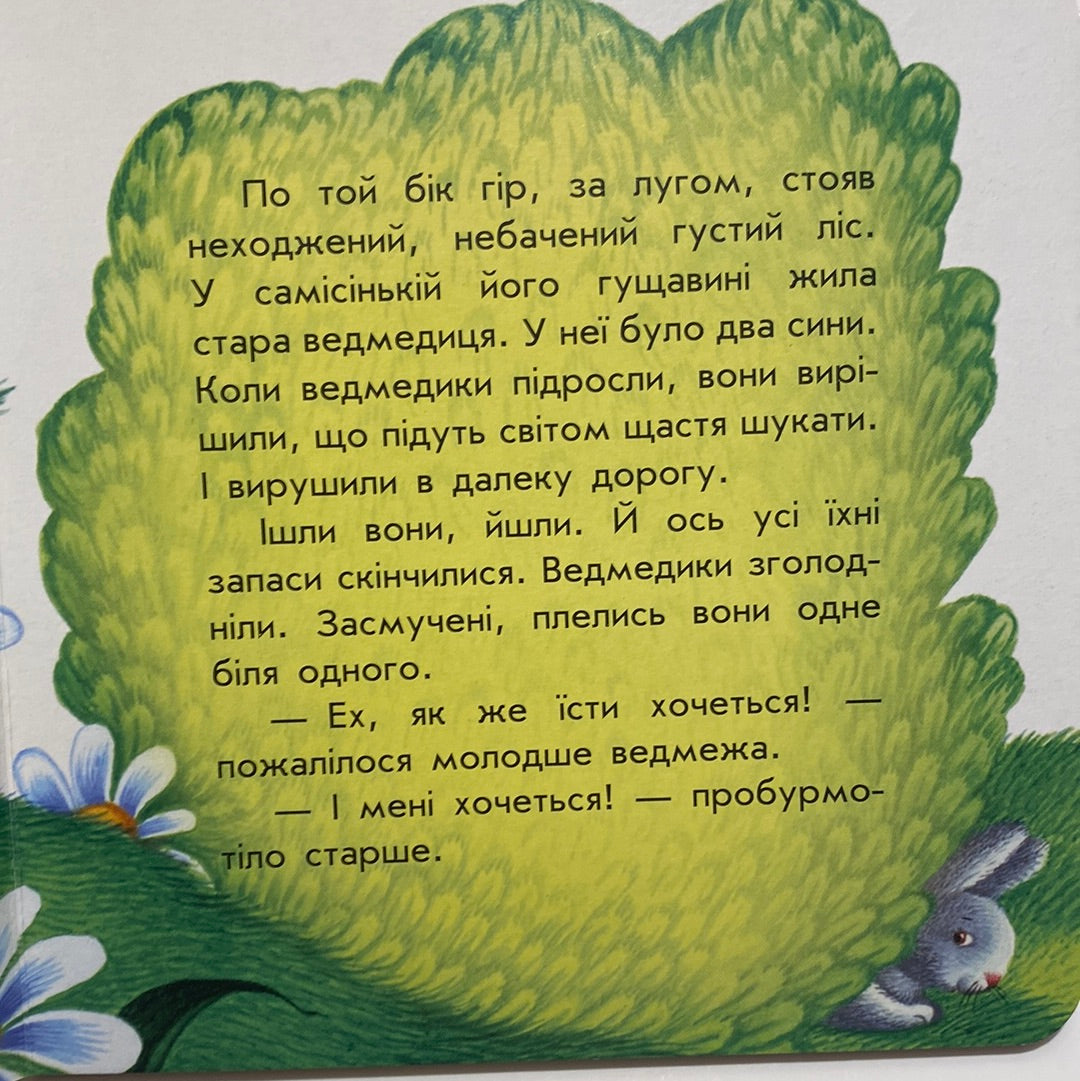 По той бік гір, за лугом, стояв
неходжений, небачений густий ліс.
У самісінькій його гущавині жила
стара ведмедиця. У неї було два сини.
Коли ведмедики підросли, вони вирі-
шили, що підуть світом щастя шукати.
І вирушили в далеку дорогу.
Ішли вони, йшли. Й ось усі їхні
запаси скінчилися. Ведмедики зголод-
ніли. Засмучені, плелись вони одне
біля одного.
— Ех, як же їсти хочеться! —
пожалілося молодше ведмежа.
— І мені хочеться! — пробурмо-
тіло старше.